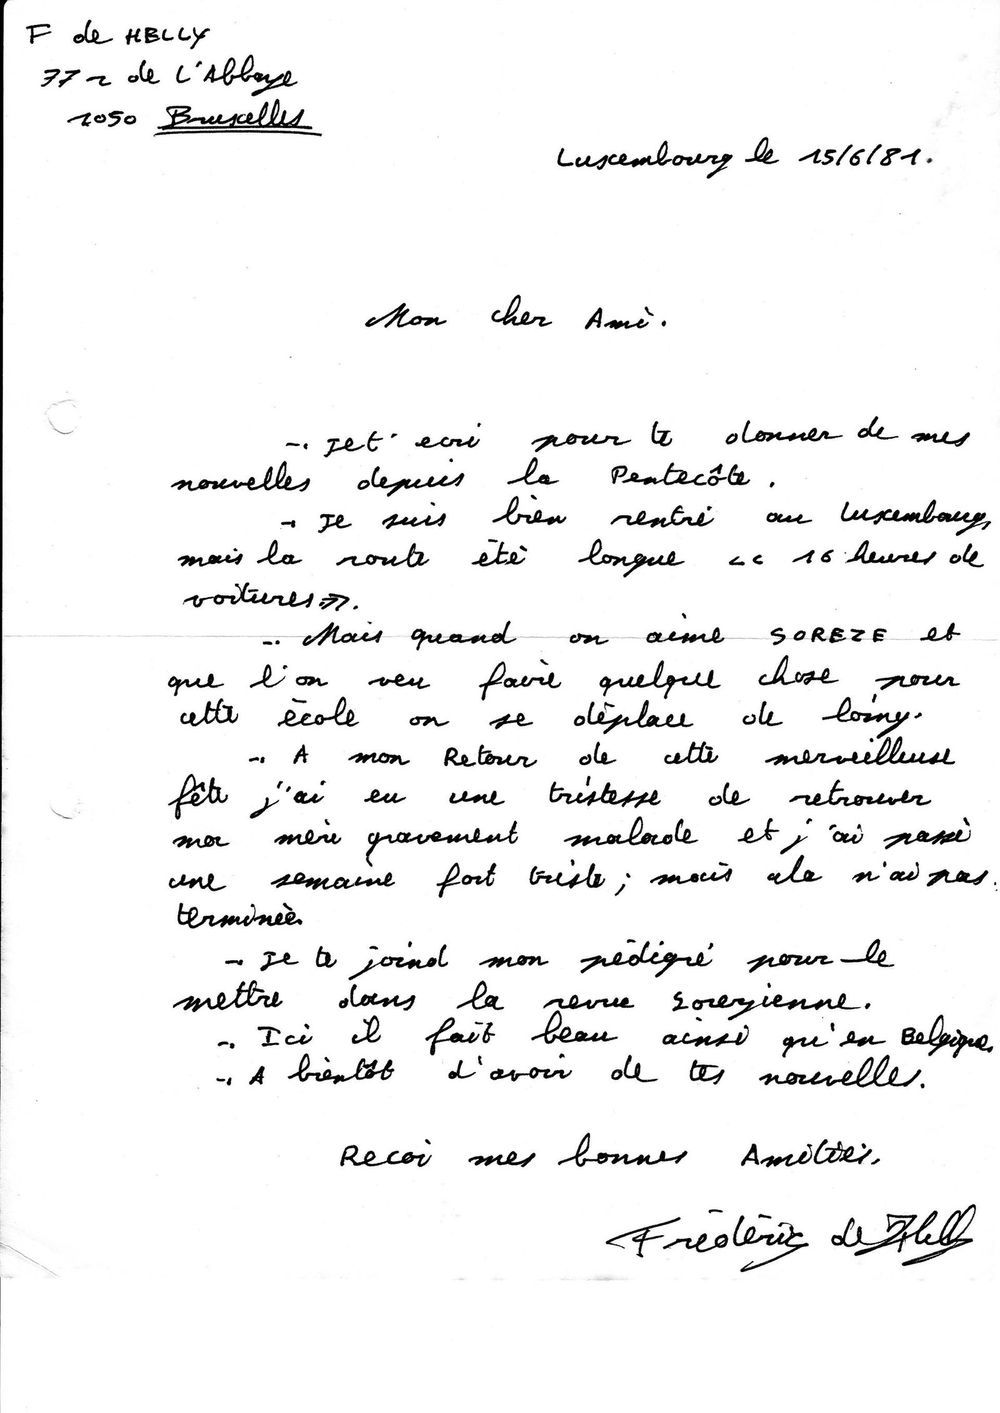 F de HELLY
77 r de L'Abbaye
1050 Bruxelles
Luxembourg le 15/6/81.
Mon cher Amé.
-. Je t' ecri pour te donner de mes
nouvelles depuis la Pentecôte.
- Je suis bien rentré au Luxembourg,
mais la route été longue << 16 heures de
voitures>>.
-. Mais quand on aime SOREZE et
que l'on veu faire quelque chose pour
cette école on se déplace de loiny.
-. A mon Retour de cette merveilleuse
fête j'ai eu une tristesse de retrouver
ma mère gravement malade et j'ai passé
une semaine fort triste; mais cela n'ai pas.
terminée.
- Je te joind mon pédigré pour le
mettre dans la revue Sorezienne.
-. Ici il fait beau ainsi qu'en Belgique.
-. A bientôt d'avoir de tes nouvelles.
Recoi mes bonnes Amitiés.
Frédéric de Helly